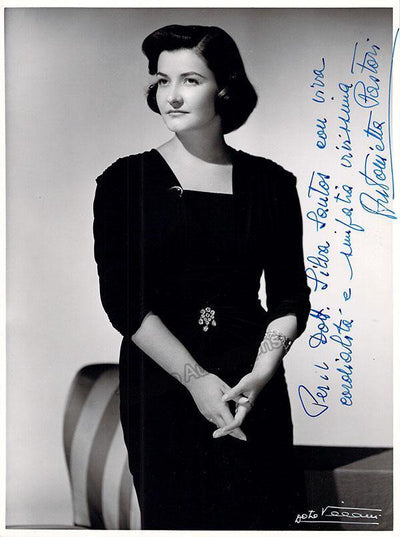 Per il Dott. Silva Santos con viva
cordialità e simpatia vivissima
Antonietta Pastori
foto
Auctions